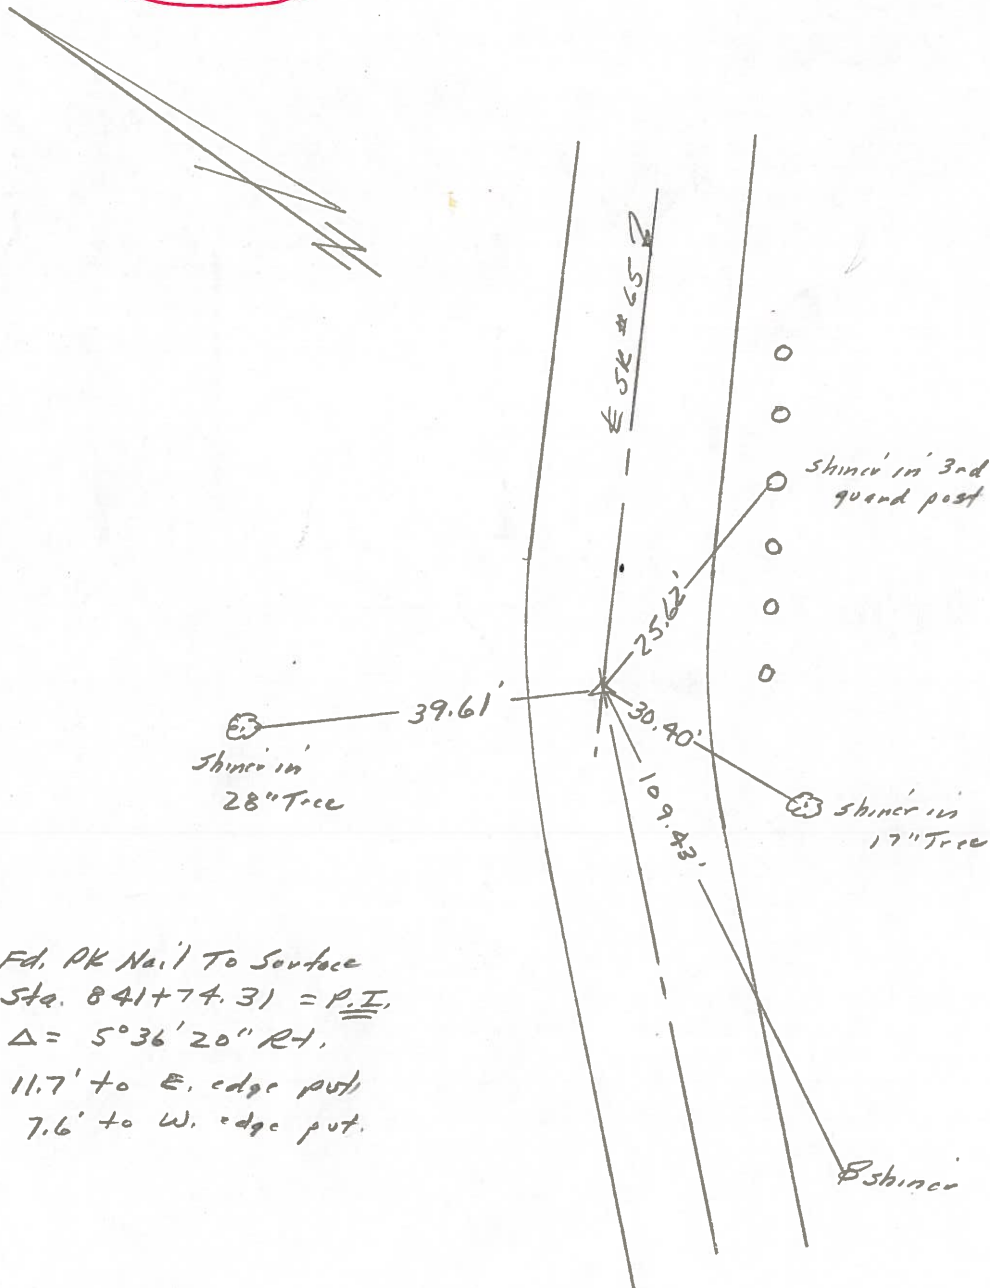 N
℄ SR # 65
shiner in 3rd
guard post
25.62'
39.61'
30.40'
109.43'
shiner in
28" Tree
shiner in
17" Tree
Fd. PK Nail To Surface
Sta. 841+74.31 = P.I.
Δ = 5°36'20" Rt.
11.7' to E. edge pvt.
7.6' to W. edge pvt.
shiner